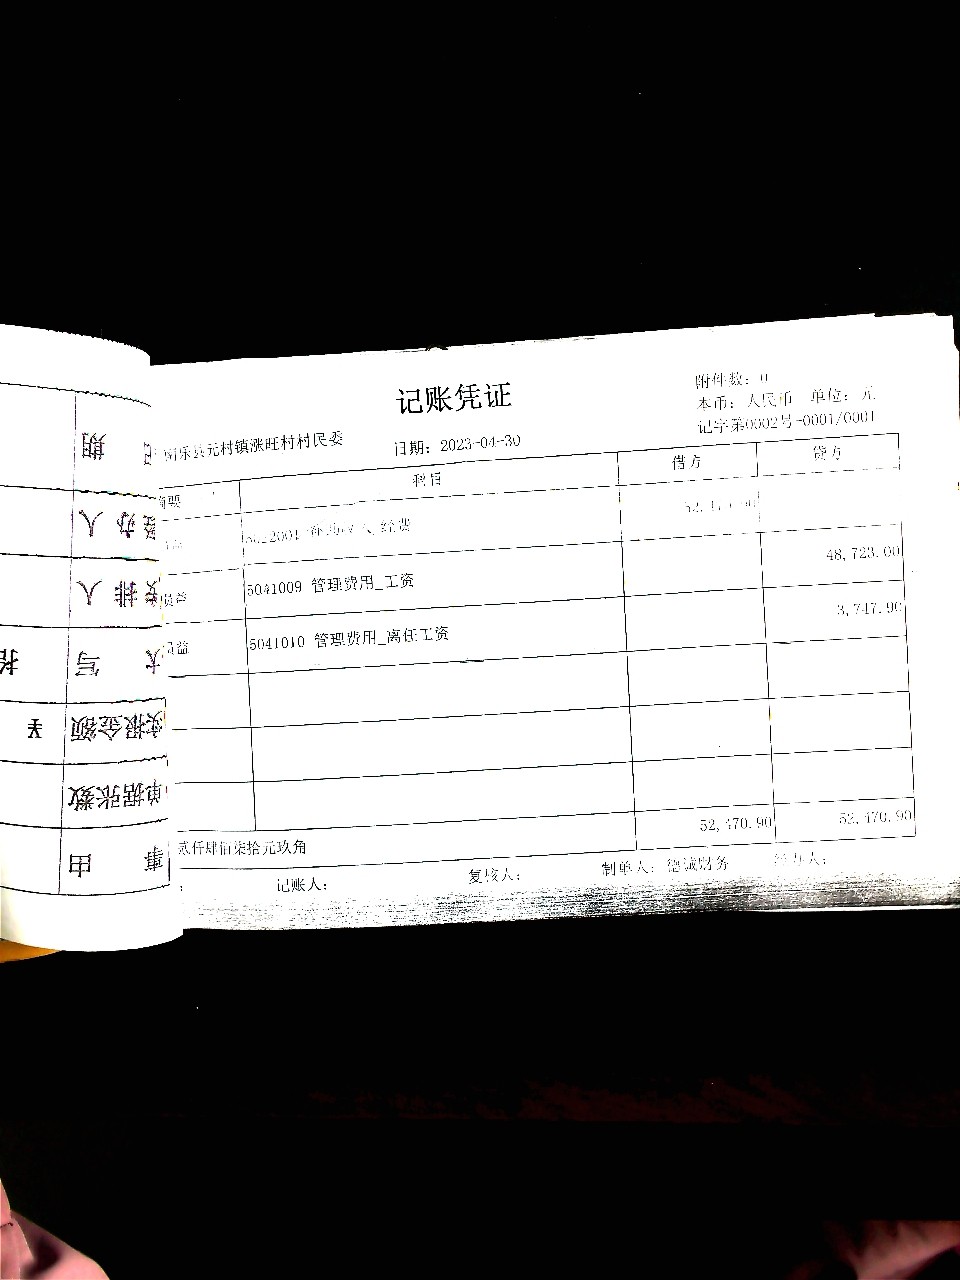 记账凭证
附件数：0
本币：人民币 单位：元
记字第0002号-0001/0001
南乐县元村镇涨旺村村民委
日期：2023-04-30
摘要 科目 借方 贷方
5041009 管理费用_工资 48,723.00
5041010 管理费用_离任工资 3,747.90
贰仟肆佰柒拾元玖角 52,470.90 52,470.90
记账人： 复核人： 制单人：德诚财务 经办人：
事 由
单据张数
实报金额 ¥
大 写 拾
安排人
经办人
日 期